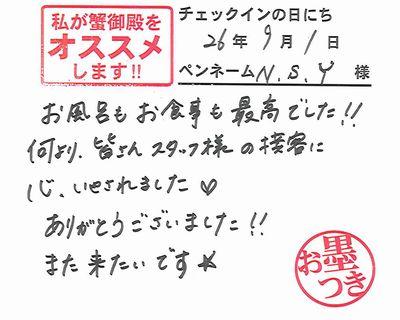 私が蟹御殿を
オススメ
します!!
チェックインの日にち
26年9月1日
ペンネーム N.S.Y 様
お風呂もお食事も最高でした!!
何より、皆さんスタッフ様の接客に
じ、いやされました♡
ありがとうございました!!
また来たいです★
お墨つき